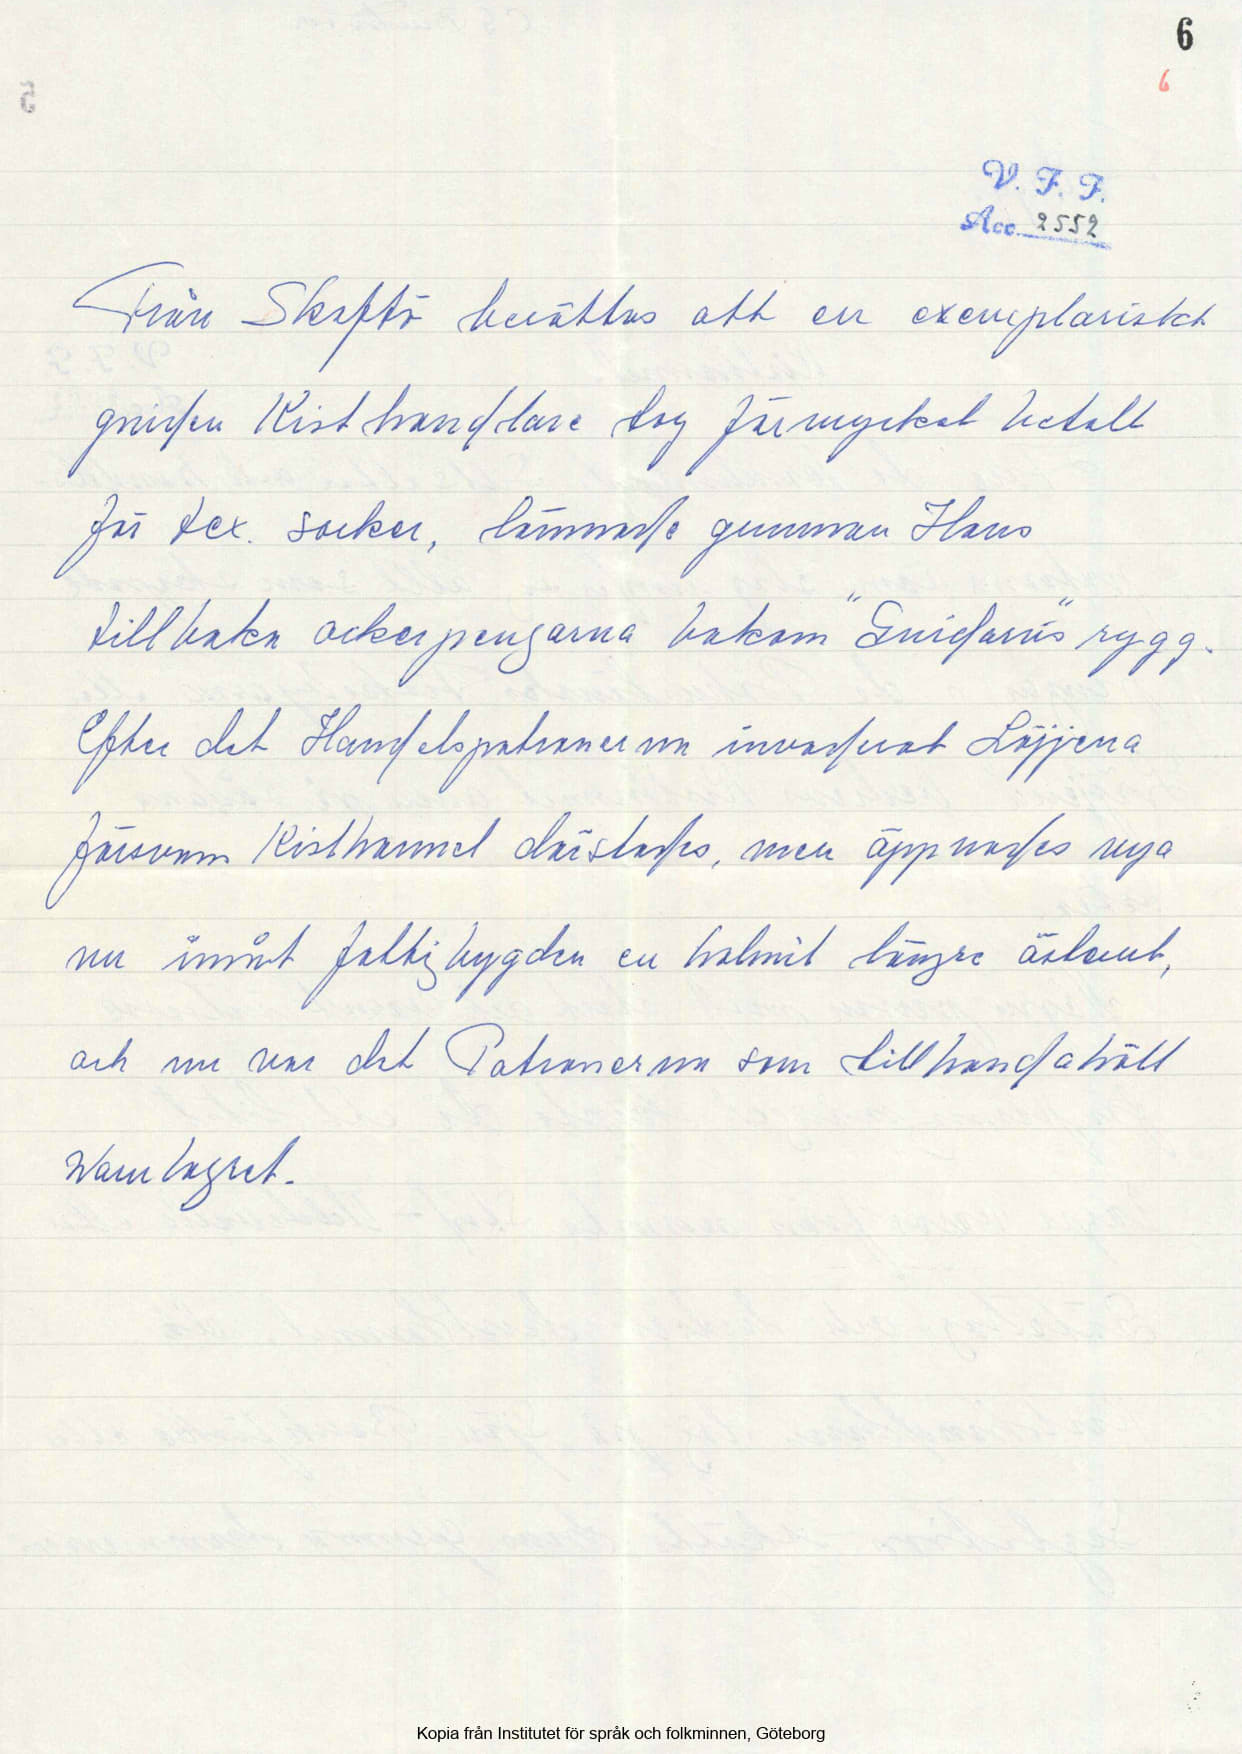 6
6
V. F. F.
Acc. 2552
Från Skaftö berättas att en exemplariskt
gniden Kisthandlare tog förmycket betalt
för tex. socker, lämnade gumman Hans
tillbaka ockerpengarna bakom "Gnidarns" rygg.
Efter det Handelspatronerna invaderat
försvann Kisthannel därstades, men äppnades nya
nu inåt fattigbygden en halvmil längre österut,
och nu var det Patronerna som tillhandahöll
Warulagret.
Kopia från Institutet för språk och folkminnen, Göteborg